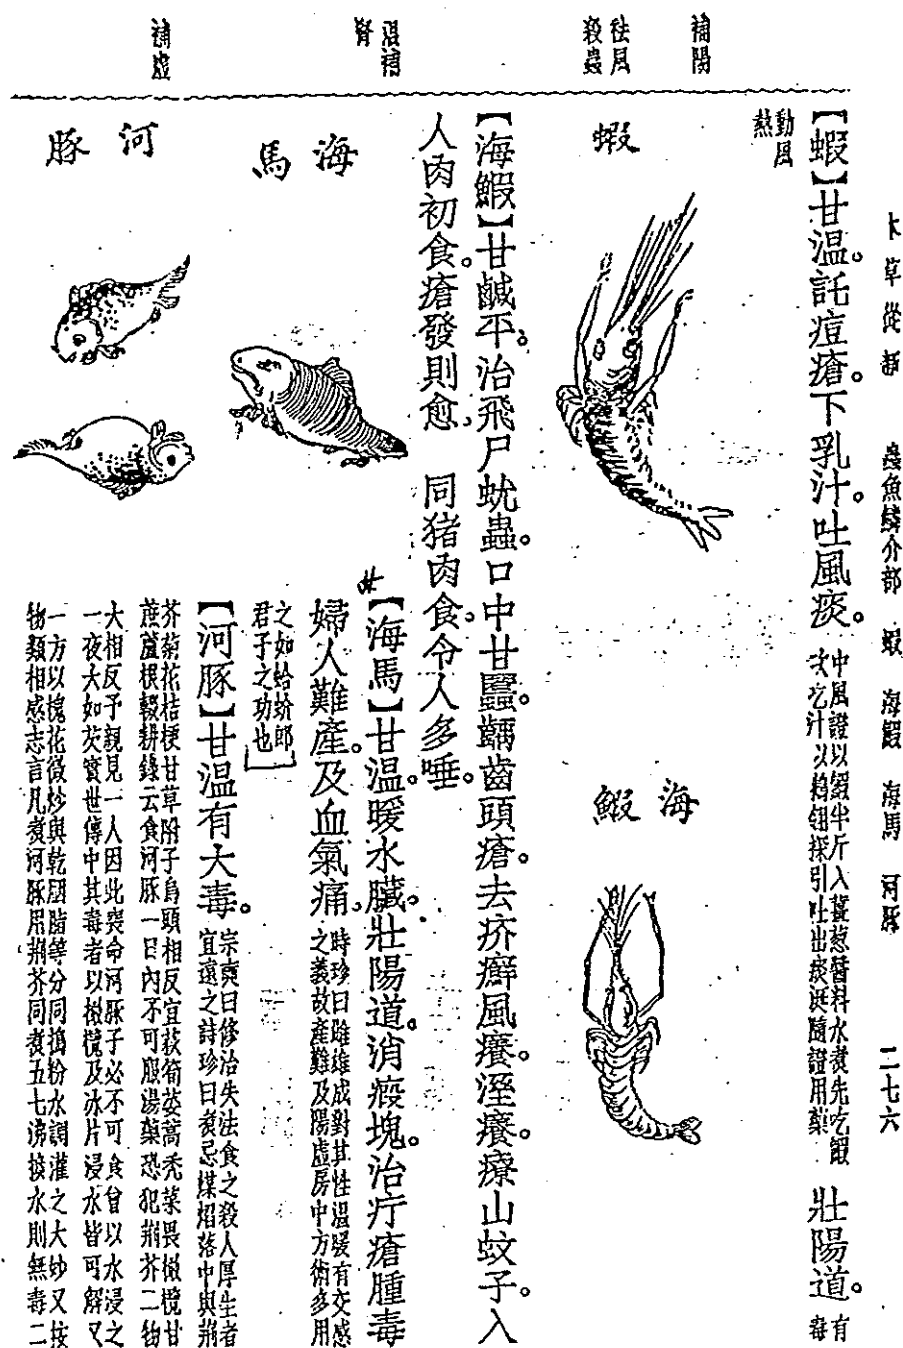 本草從新　蟲魚鱗介部　蝦　海鰕　海馬　河豚　二七六
補陽
祛風
殺蟲
溫補
腎
補虛
【蝦】甘溫。託痘瘡。下乳汁。吐風痰。中風證以鰕半斤入薑葱醬料水煮先吃鰕
次吃汁以鵝翎探引吐出痰涎隨證用藥　壯陽道。有毒
動風
熱
蝦
海鰕
【海鰕】甘鹹平。治飛尸蚘蟲。口中甘䘌。齲齒頭瘡。去疥癬風癢。溼癢。療山蚊子。入
人肉初食。瘡發則愈。　同猪肉食。令人多唾。
海馬
【海馬】甘溫。暖水臟。壯陽道。消瘕塊。治疔瘡腫毒
婦人難產。及血氣痛。時珍曰雌雄成對其性溫暖有交感
之義故產難及陽虛房中方術多用
之如蛤蚧郎
君子之功也
河豚
【河豚】甘溫有大毒。宗奭曰修治失法食之殺人厚生者
宜遠之詩珍曰煑忌煤煤落中與荊
芥菊花桔梗甘草附子烏頭相反宜荻筍蔞蒿禿菜畏橄欖甘
蔗蘆根輟耕錄云食河豚一日內不可服湯藥恐犯荊芥二物
大相反予親見一人因此喪命河豚子必不可食曾以水浸之
一夜大如芡實世傳中其毒者以橄欖及冰片浸水皆可解又
一方以槐花微炒與乾胭脂等分同搗粉水調灌之大妙又按
物類相感志言凡煑河豚用荊芥同煑五七沸換水則無毒二